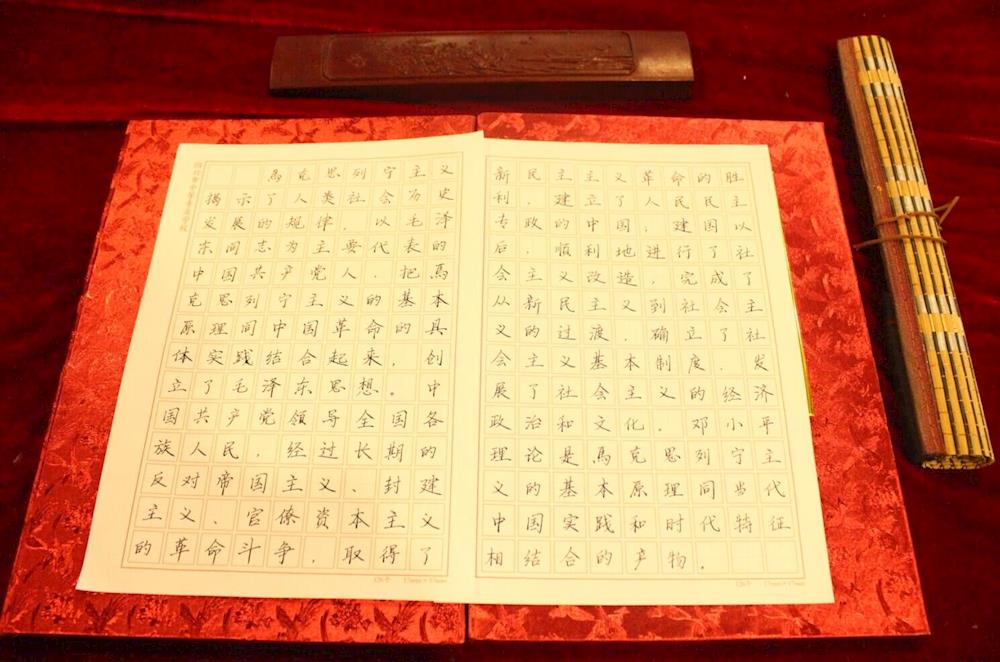 馬克思列宁主义
揭示了人类社会历史
发展的规律，以毛泽
东同志为主要代表的
中国共产党人，把馬
克思列宁主义的基本
原理同中国革命的具
体实践结合起来，创
立了毛泽东思想。中
国共产党领导全国各
族人民，经过长期的
反对帝国主义、封建
主义、官僚资本主义
的革命斗争，取得了
新民主主义革命的胜
利，建立了人民民主
专政的中国；建国以
后，顺利地进行了社
会主义改造，完成了
从新民主主义到社会主
义的过渡，确立了社
会主义基本制度，发
展了社会主义的经济
政治和文化。邓小平
理论是馬克思列宁主
义的基本原理同当代
中国实践和时代特征
相结合的产物。